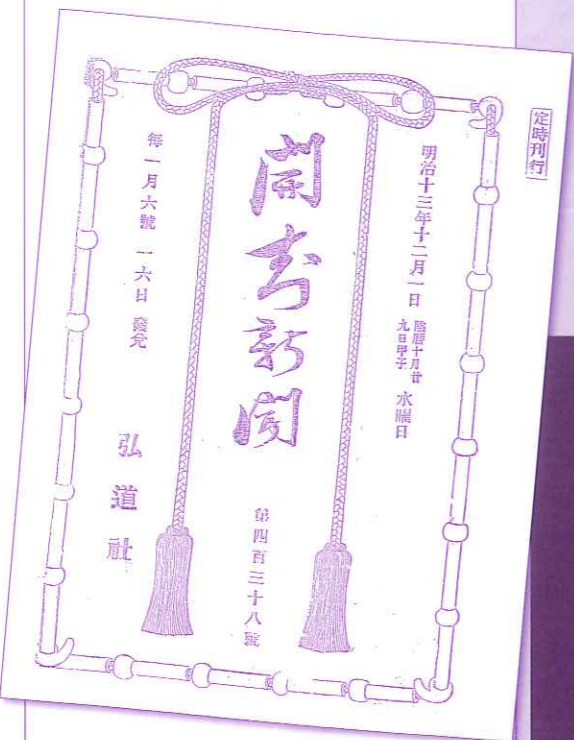 定時刊行
明治十三年十二月一日 陰曆十月廿九日甲子 水曜日
開 新聞
第四百三十八號
每一月六號 一六日 發兌
弘道社